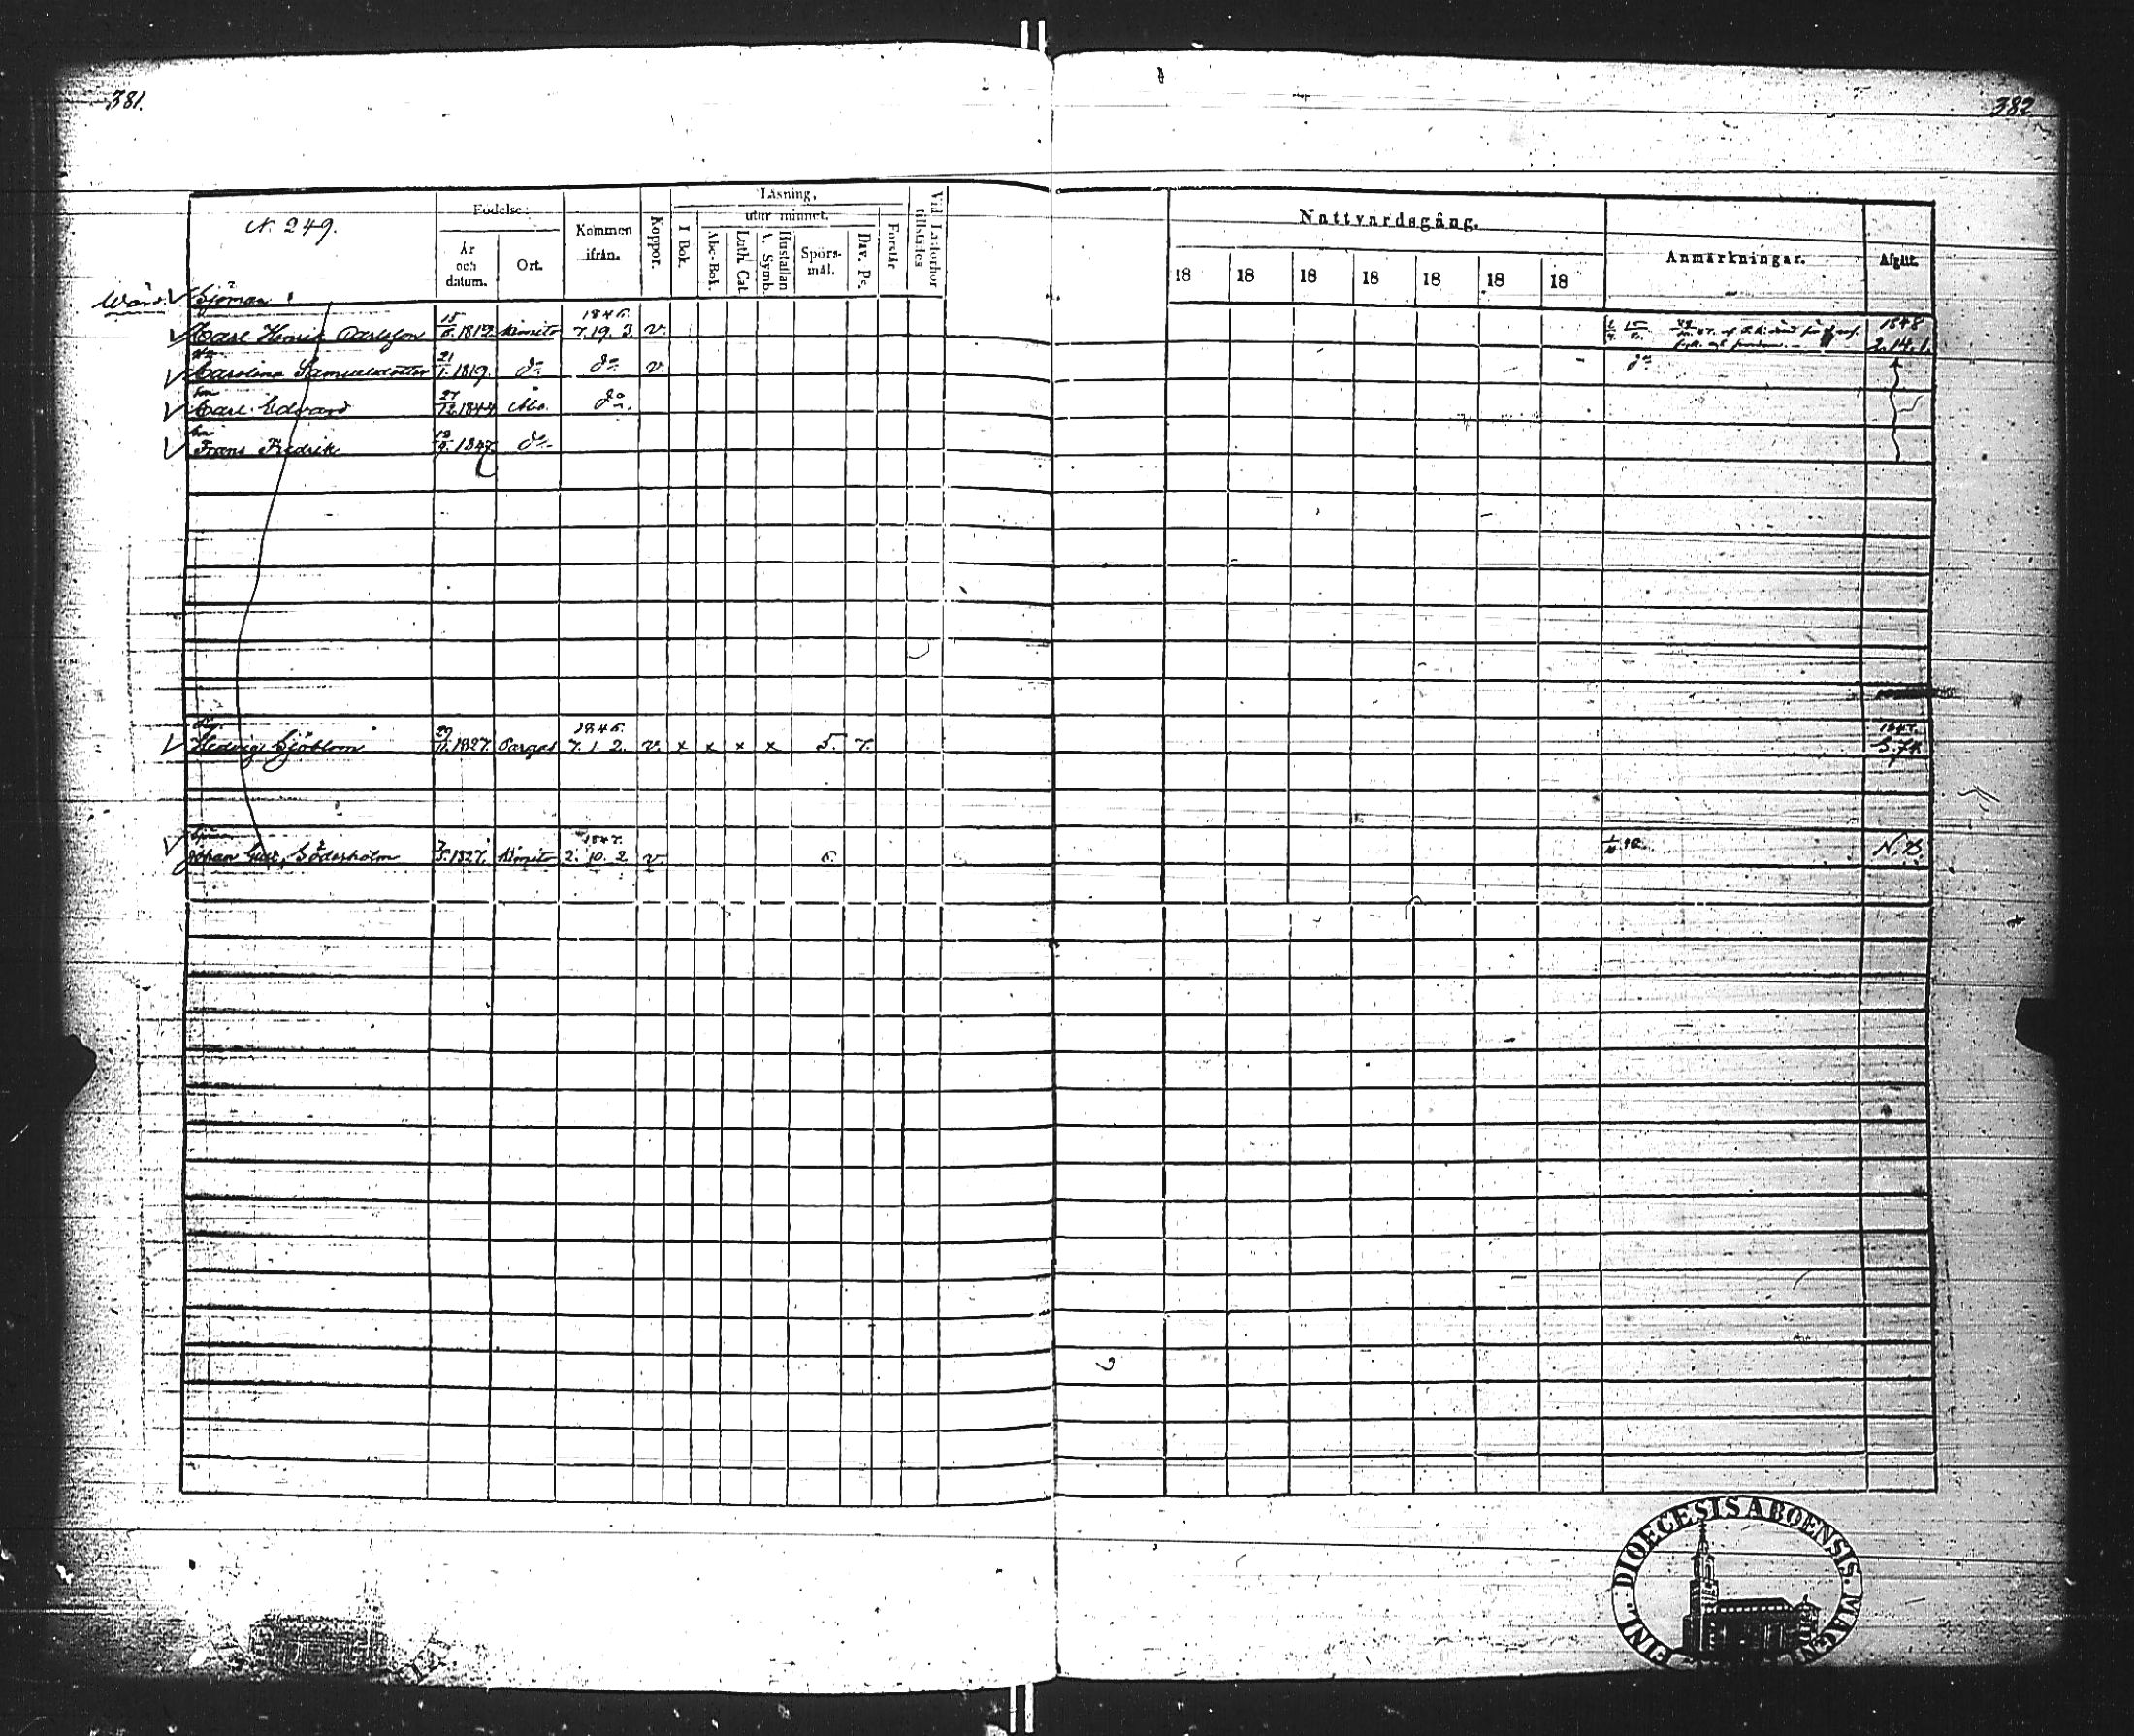 381.
382
N. 249.
Födelse:
År och datum.
Ort.
Kommen ifrån.
Koppor.
Läsning,
utur minnet.
I Bok.
Abc-Bok.
Luth. Cat.
A. Symb.
Hustaflan
Spörsmål.
Dav. Ps.
Förstår
Vid Läsförhör tillstädes
Nattvardsgång.
18 18 18 18 18 18 18
Anmärkningar.
Afgått.
Sjöman
1846. 1848
Carl Henrik Carlsson 15/6. 1812. Kimito 7. 19. 3. v. 2. 14. 1.
Carolina Samuelsdotter 21/1. 1819. do do v. do
son
Carl Edvard 27/12. 1844 Åbo. do
son
Frans Fredrik 1847. do
1846. 1847.
Hedvig Sjöblom 29/11. 1827. Pargas 7. 1. 2. v. x x x x 5. 7. 5. 74
1847.
Johan Söderholm 1827. Kimito 2. 10. 2. v. 6. N. D.
FINL. DIOECESIS ABOENSIS. MAGN